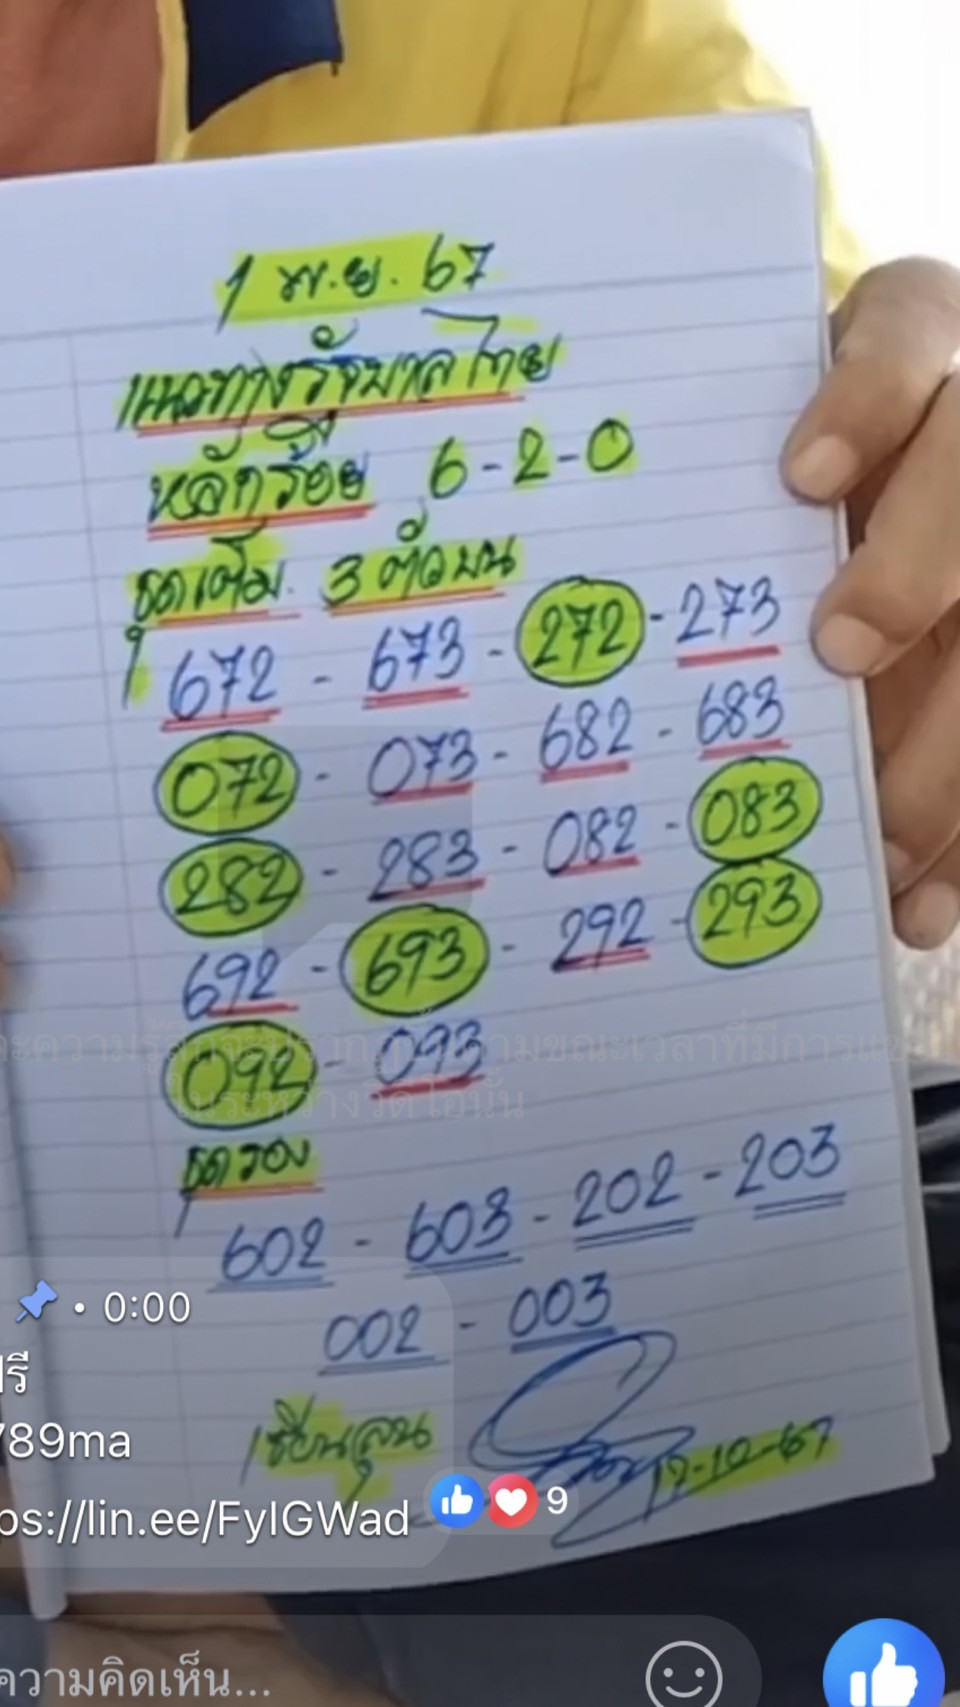 1 พ.ย. 67
แนวทางรัฐบาลไทย
หลักร้อย 6-2-0
ชุดเต็ม. 3 ตัวบน
672 - 673 - 272 - 273
072 - 073 - 682 - 683
282 - 283 - 082 - 083
692 - 693 - 292 - 293
092 - 093
ชุดรอง
602 - 603 - 202 - 203
002 - 003
เซียนลุน
17-10-67
• 0:00
789ma
ps://lin.ee/FyIGWad
9
ความคิดเห็น...